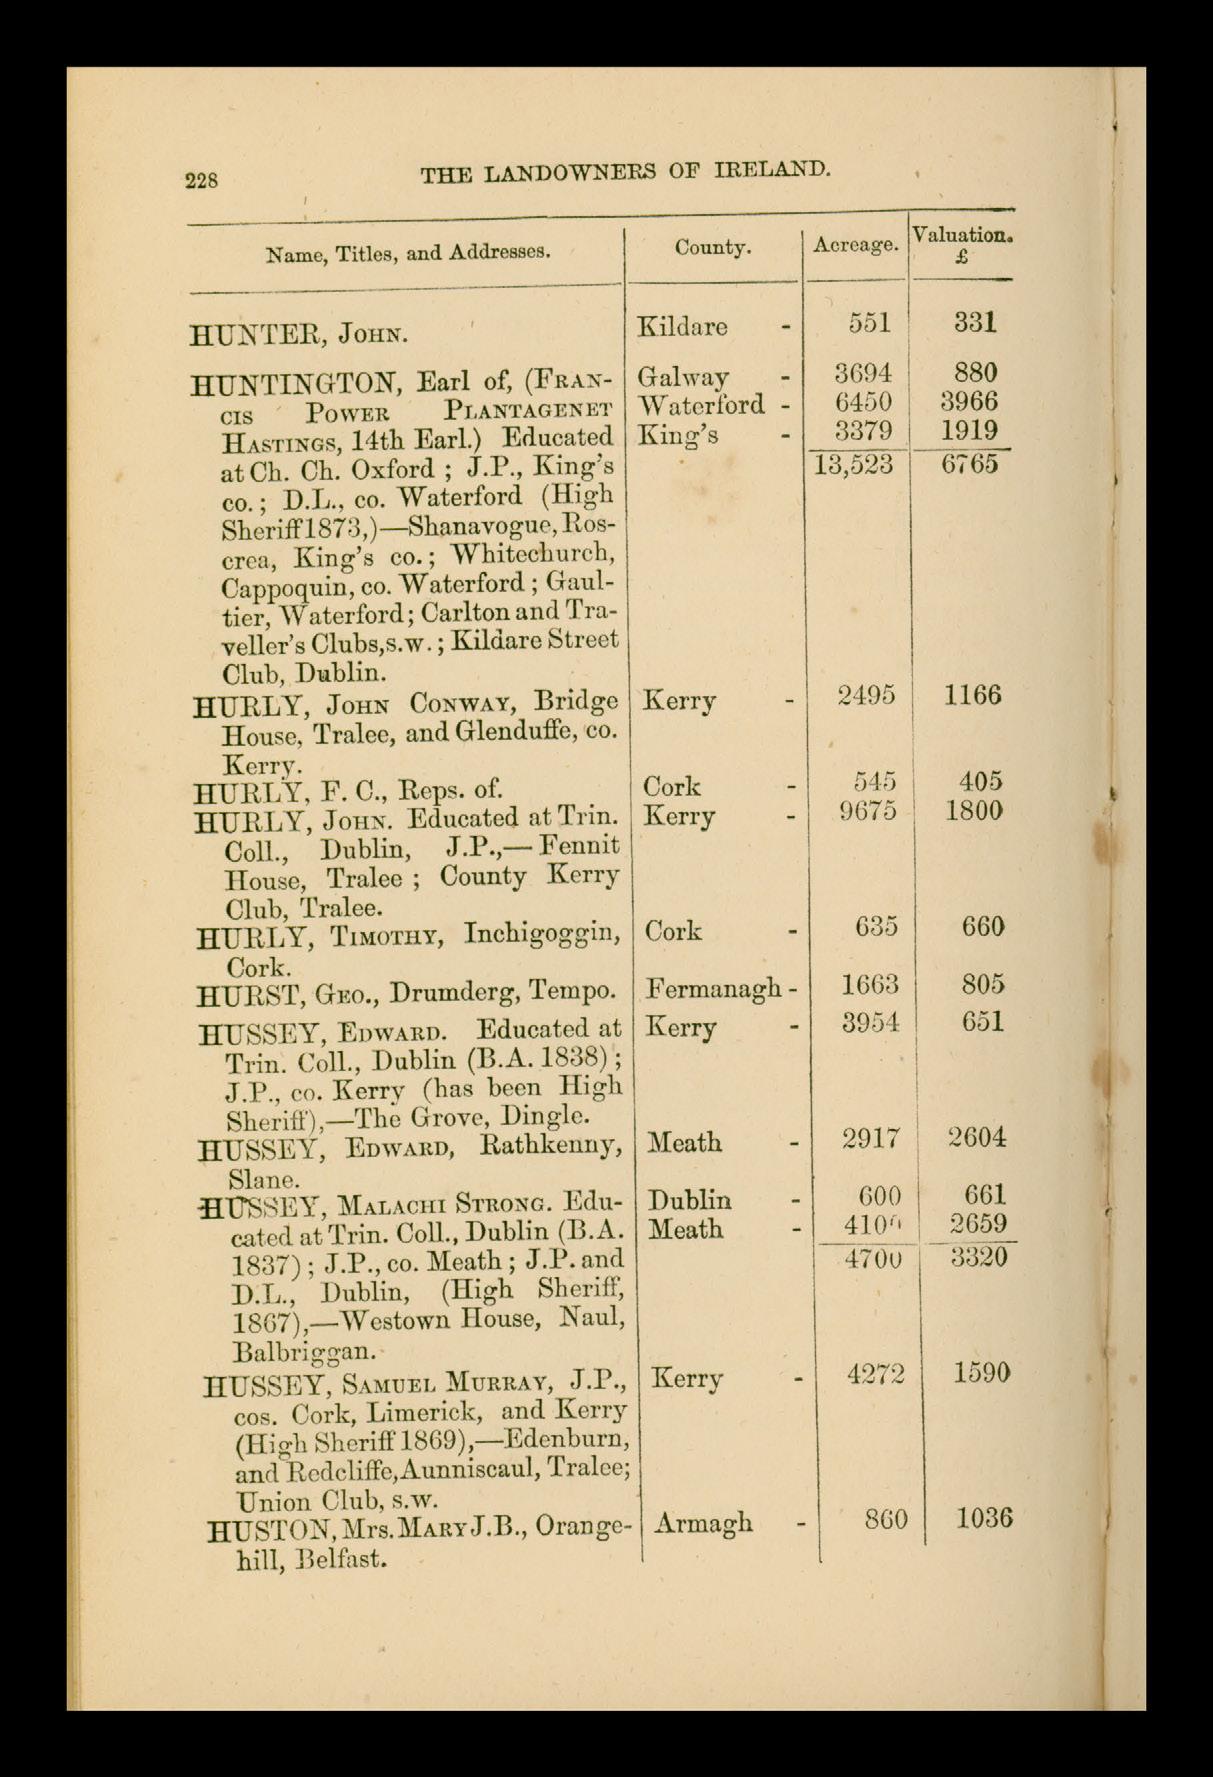 228
THE LANDOWNERS OF IRELAND.
Name, Titles, and Addresses. County. Acreage. Valuation. £
HUNTER, JOHN. Kildare - 551 331
HUNTINGTON, Earl of, (FRAN- Galway - 3694 880
CIS POWER PLANTAGENET Waterford - 6450 3966
HASTINGS, 14th Earl.) Educated King's - 3379 1919
at Ch. Ch. Oxford ; J.P., King's 13,523 6765
co. ; D.L., co. Waterford (High
Sheriff 1873,)—Shanavogue, Ros-
crea, King's co. ; Whitechurch,
Cappoquin, co. Waterford ; Gaul-
tier, Waterford ; Carlton and Tra-
veller's Clubs, S.W. ; Kildare Street
Club, Dublin.
HURLY, JOHN CONWAY, Bridge Kerry - 2495 1166
House, Tralee, and Glenduffe, co.
Kerry.
HURLY, F. C., Reps. of. Cork - 545 405
HURLY, JOHN. Educated at Trin. Kerry - 9675 1800
Coll., Dublin, J.P.,—Fennit
House, Tralee ; County Kerry
Club, Tralee.
HURLY, TIMOTHY, Inchigoggin, Cork - 635 660
Cork.
HURST, GEO., Drumderg, Tempo. Fermanagh - 1663 805
HUSSEY, EDWARD. Educated at Kerry - 3954 651
Trin. Coll., Dublin (B.A. 1838) ;
J.P., co. Kerry (has been High
Sheriff),—The Grove, Dingle.
HUSSEY, EDWARD, Rathkenny, Meath - 2917 2604
Slane.
HUSSEY, MALACHI STRONG. Edu- Dublin - 600 661
cated at Trin. Coll., Dublin (B.A. Meath - 4100 2659
1837) ; J.P., co. Meath ; J.P. and 4700 3320
D.L., Dublin, (High Sheriff,
1867),—Westown House, Naul,
Balbriggan.
HUSSEY, SAMUEL MURRAY, J.P., Kerry - 4272 1590
cos. Cork, Limerick, and Kerry
(High Sheriff 1869),—Edenburn,
and Redcliffe, Aunniscaul, Tralee;
Union Club, S.W.
HUSTON, Mrs. MARY J.B., Orange- Armagh - 860 1036
hill, Belfast.